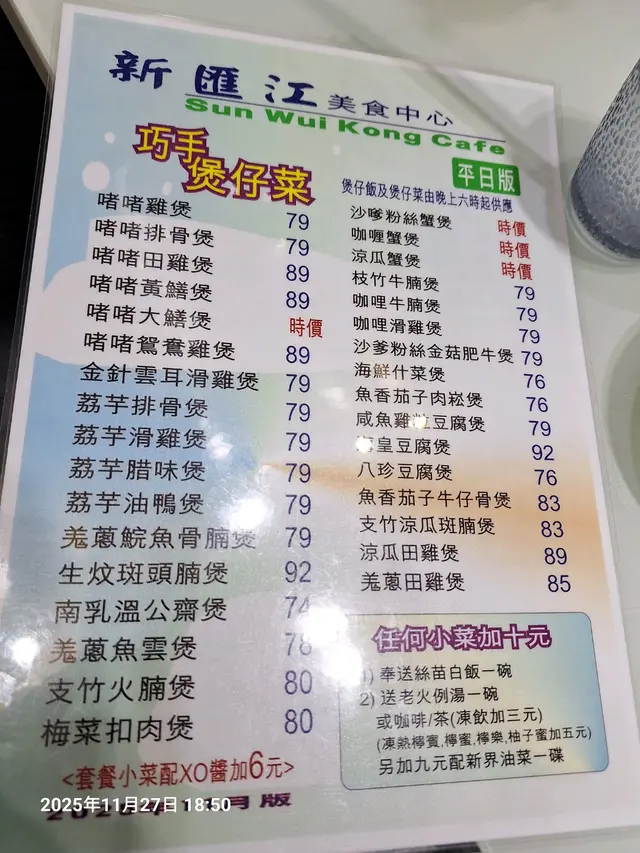 新匯江美食中心
Sun Wui Kong Cafe
巧手
煲仔菜
平日版
煲仔飯及煲仔菜由晚上六時起供應
啫啫雞煲 79
啫啫排骨煲 79
啫啫田雞煲 89
啫啫黃鱔煲 89
啫啫大鱔煲 時價
啫啫鴛鴦雞煲 89
金針雲耳滑雞煲 79
荔芋排骨煲 79
荔芋滑雞煲 79
荔芋腊味煲 79
荔芋油鴨煲 79
羗蔥鯇魚骨腩煲 79
生炆斑頭腩煲 92
南乳溫公齋煲 74
羗蔥魚雲煲 78
支竹火腩煲 80
梅菜扣肉煲 80
<套餐小菜配XO醬加6元>
沙嗲粉絲蟹煲 時價
咖喱蟹煲 時價
涼瓜蟹煲 時價
枝竹牛腩煲 79
咖哩牛腩煲 79
咖哩滑雞煲 79
沙爹粉絲金菇肥牛煲 79
海鮮什菜煲 76
魚香茄子肉崧煲 76
咸魚雞粒豆腐煲 79
皇豆腐煲 92
八珍豆腐煲 76
魚香茄子牛仔骨煲 83
支竹涼瓜斑腩煲 83
涼瓜田雞煲 89
羗蔥田雞煲 85
任何小菜加十元
1) 奉送絲苗白飯一碗
2) 送老火例湯一碗
或咖啡/茶(凍飲加三元)
(凍熱檸賓,檸蜜,檸樂,柚子蜜加五元)
另加九元配新界油菜一碟
月版
2025年11月27日 18:50